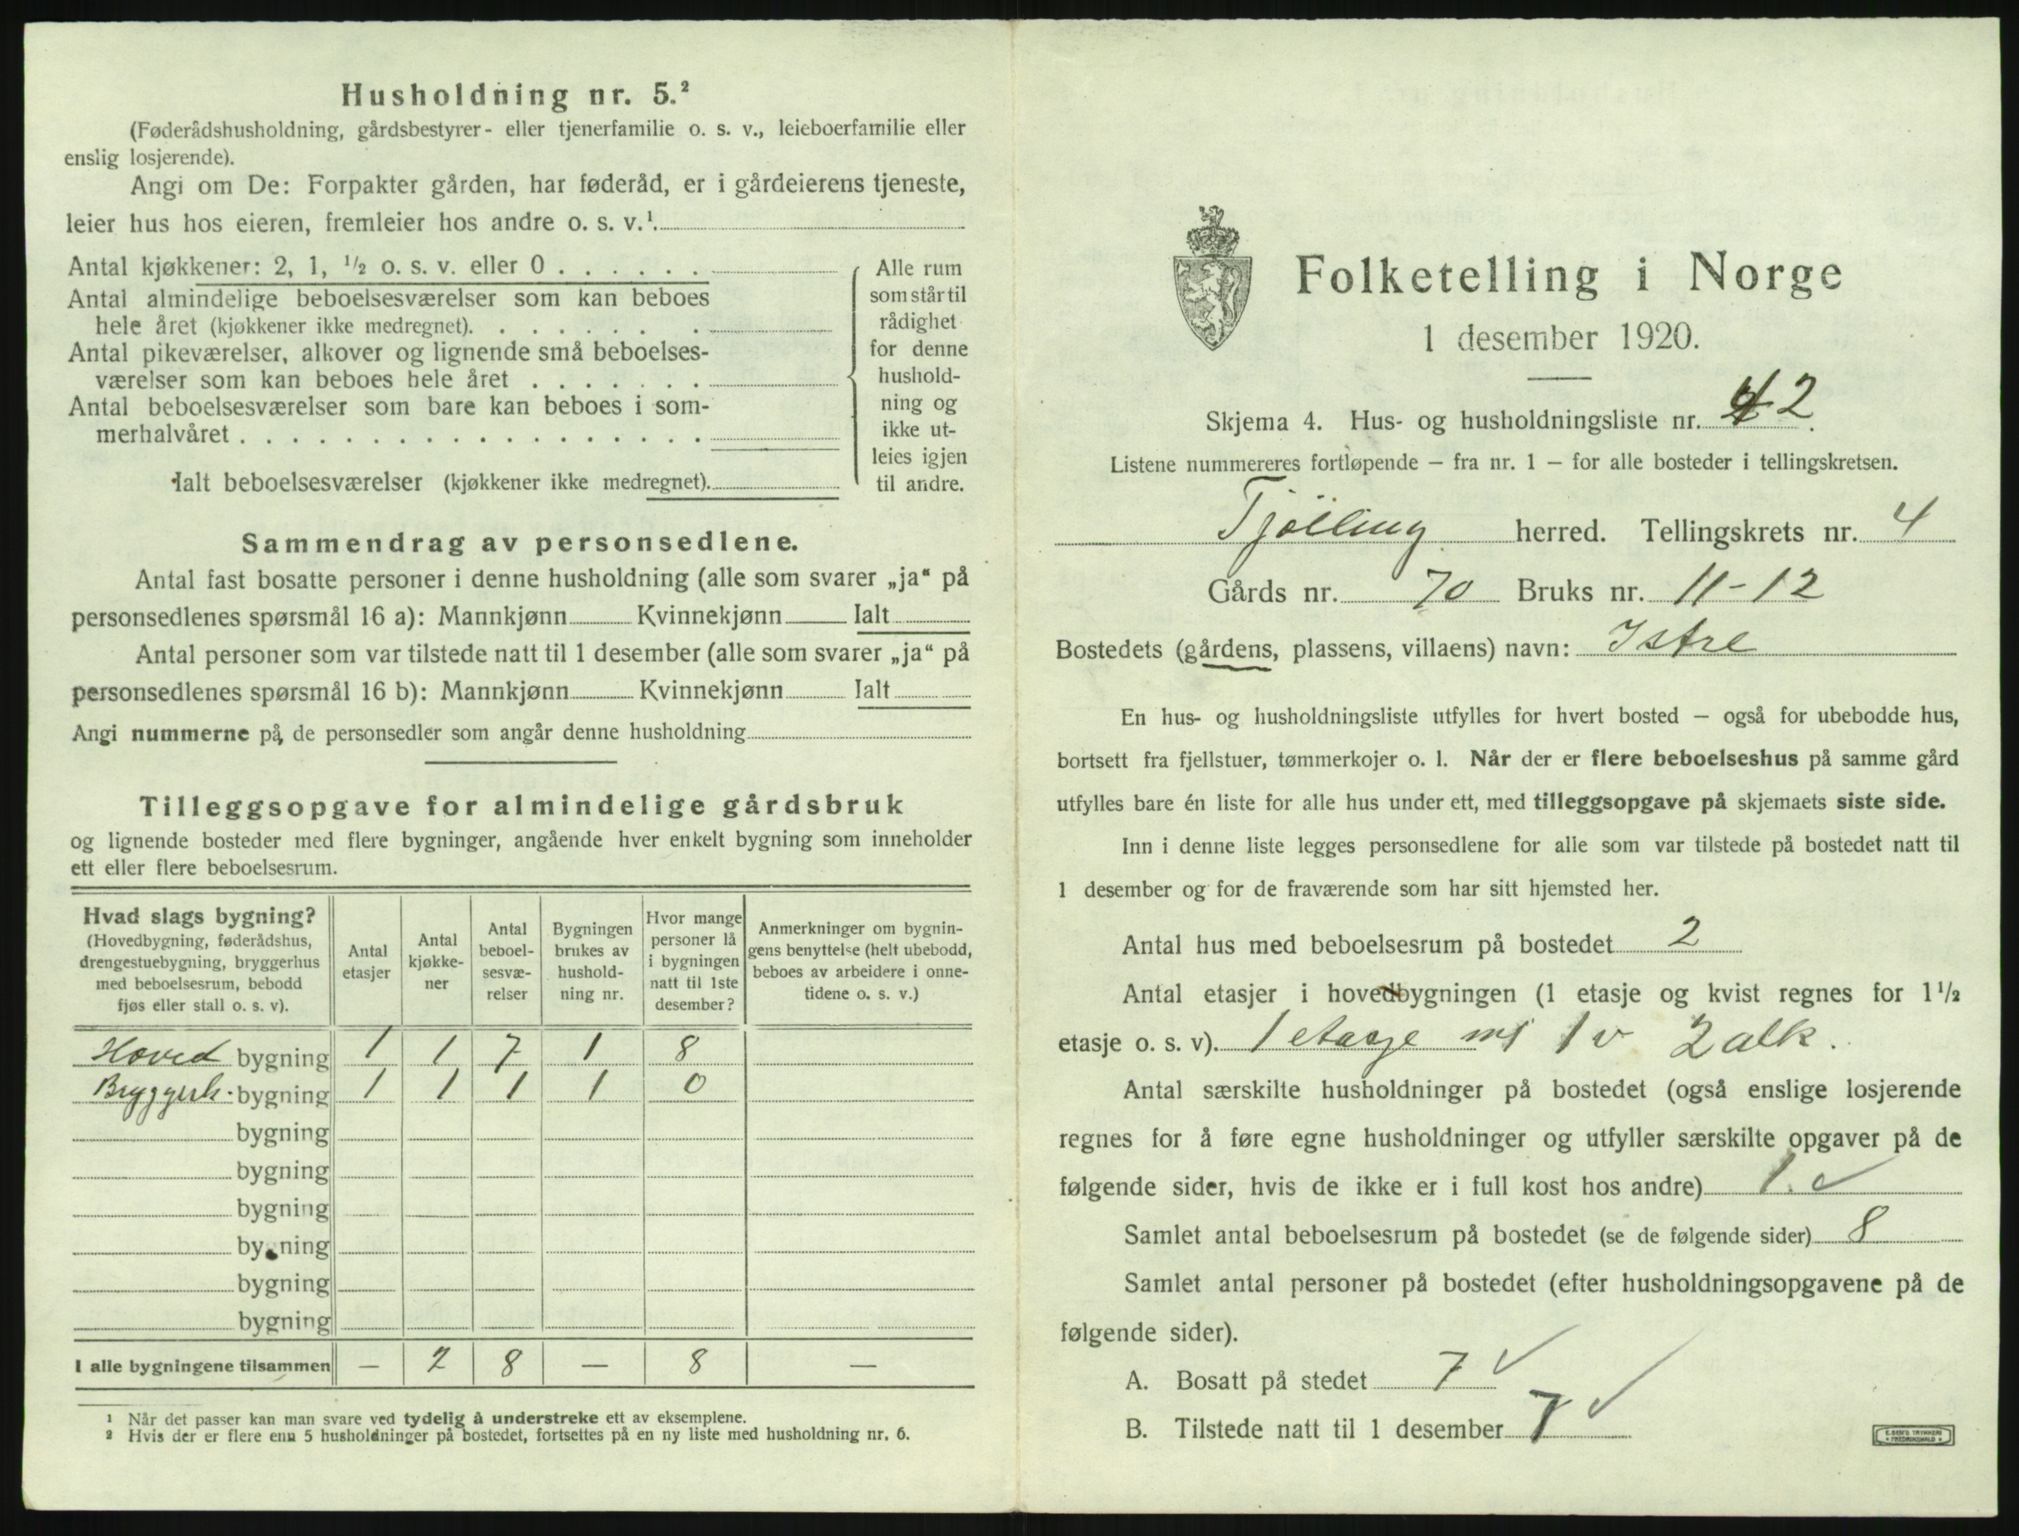 Husholdning nr. 5.²
(Føderådshusholdning, gårdsbestyrer- eller tjenerfamilie o. s. v., leieboerfamilie eller
enslig losjerende).
Angi om De: Forpakter gården, har føderåd, er i gårdeierens tjeneste,
leier hus hos eieren, fremleier hos andre o. s. v.¹.
Antal kjøkkener: 2, 1, ½ o. s. v. eller 0 . . . . . .
Antal almindelige beboelsesværelser som kan beboes
hele året (kjøkkener ikke medregnet). . . . . . . .
Antal pikeværelser, alkover og lignende små beboelses-
værelser som kan beboes hele året . . . . . . .
Antal beboelsesværelser som bare kan beboes i som-
merhalvåret . . . . . . . . . . . . . . . . . .
Ialt beboelsesværelser (kjøkkener ikke medregnet).
Alle rum
som står til
rådighet
for denne
hushold-
ning og
ikke ut-
leies igjen
til andre.
Sammendrag av personsedlene.
Antal fast bosatte personer i denne husholdning (alle som svarer „ja“ på
personsedlenes spørsmål 16 a): Mannkjønn Kvinnekjønn Ialt
Antal personer som var tilstede natt til 1 desember (alle som svarer „ja“ på
personsedlenes spørsmål 16 b): Mannkjønn Kvinnekjønn Ialt
Angi nummerne på de personsedler som angår denne husholdning
Tilleggsopgave for almindelige gårdsbruk
og lignende bosteder med flere bygninger, angående hver enkelt bygning som inneholder
ett eller flere beboelsesrum.
Hvad slags bygning?
(Hovedbygning, føderådshus,
drengestuebygning, bryggerhus
med beboelsesrum, bebodd
fjøs eller stall o. s. v).
Antal
etasjer
Antal
kjøkke-
ner
Antal
beboel-
sesvæ-
relser
Bygningen
brukes av
hushold-
ning nr.
Hvor mange
personer lå
i bygningen
natt til 1ste
desember?
Anmerkninger om bygnin-
gens benyttelse (helt ubebodd,
beboes av arbeidere i onne-
tidene o. s. v.)
Hoved bygning 1 1 7 1 8
Bryggerh. bygning 1 1 1 1 0
bygning
bygning
bygning
bygning
bygning
bygning
I alle bygningene tilsammen — 2 8 — 8 —
¹ Når det passer kan man svare ved tydelig å understreke ett av eksemplene.
² Hvis der er flere enn 5 husholdninger på bostedet, fortsettes på en ny liste med husholdning nr. 6.
Folketelling i Norge
1 desember 1920.
Skjema 4. Hus- og husholdningsliste nr. 42.
Listene nummereres fortløpende — fra nr. 1 — for alle bosteder i tellingskretsen.
Tjølling herred. Tellingskrets nr. 4
Gårds nr. 70 Bruks nr. 11-12
Bostedets (gårdens, plassens, villaens) navn: Istre
En hus- og husholdningsliste utfylles for hvert bosted — også for ubebodde hus,
bortsett fra fjellstuer, tømmerkojer o. l. Når der er flere beboelseshus på samme gård
utfylles bare én liste for alle hus under ett, med tilleggsopgave på skjemaets siste side.
Inn i denne liste legges personsedlene for alle som var tilstede på bostedet natt til
1 desember og for de fraværende som har sitt hjemsted her.
Antal hus med beboelsesrum på bostedet 2
Antal etasjer i hovedbygningen (1 etasje og kvist regnes for 1½
etasje o. s. v). 1 etasje m/ 1 v 2 alk.
Antal særskilte husholdninger på bostedet (også enslige losjerende
regnes for å føre egne husholdninger og utfyller særskilte opgaver på de
følgende sider, hvis de ikke er i full kost hos andre) 1. ✓
Samlet antal beboelsesrum på bostedet (se de følgende sider) 8
Samlet antal personer på bostedet (efter husholdningsopgavene på de
følgende sider).
A. Bosatt på stedet 7 ✓
B. Tilstede natt til 1 desember 7 ✓